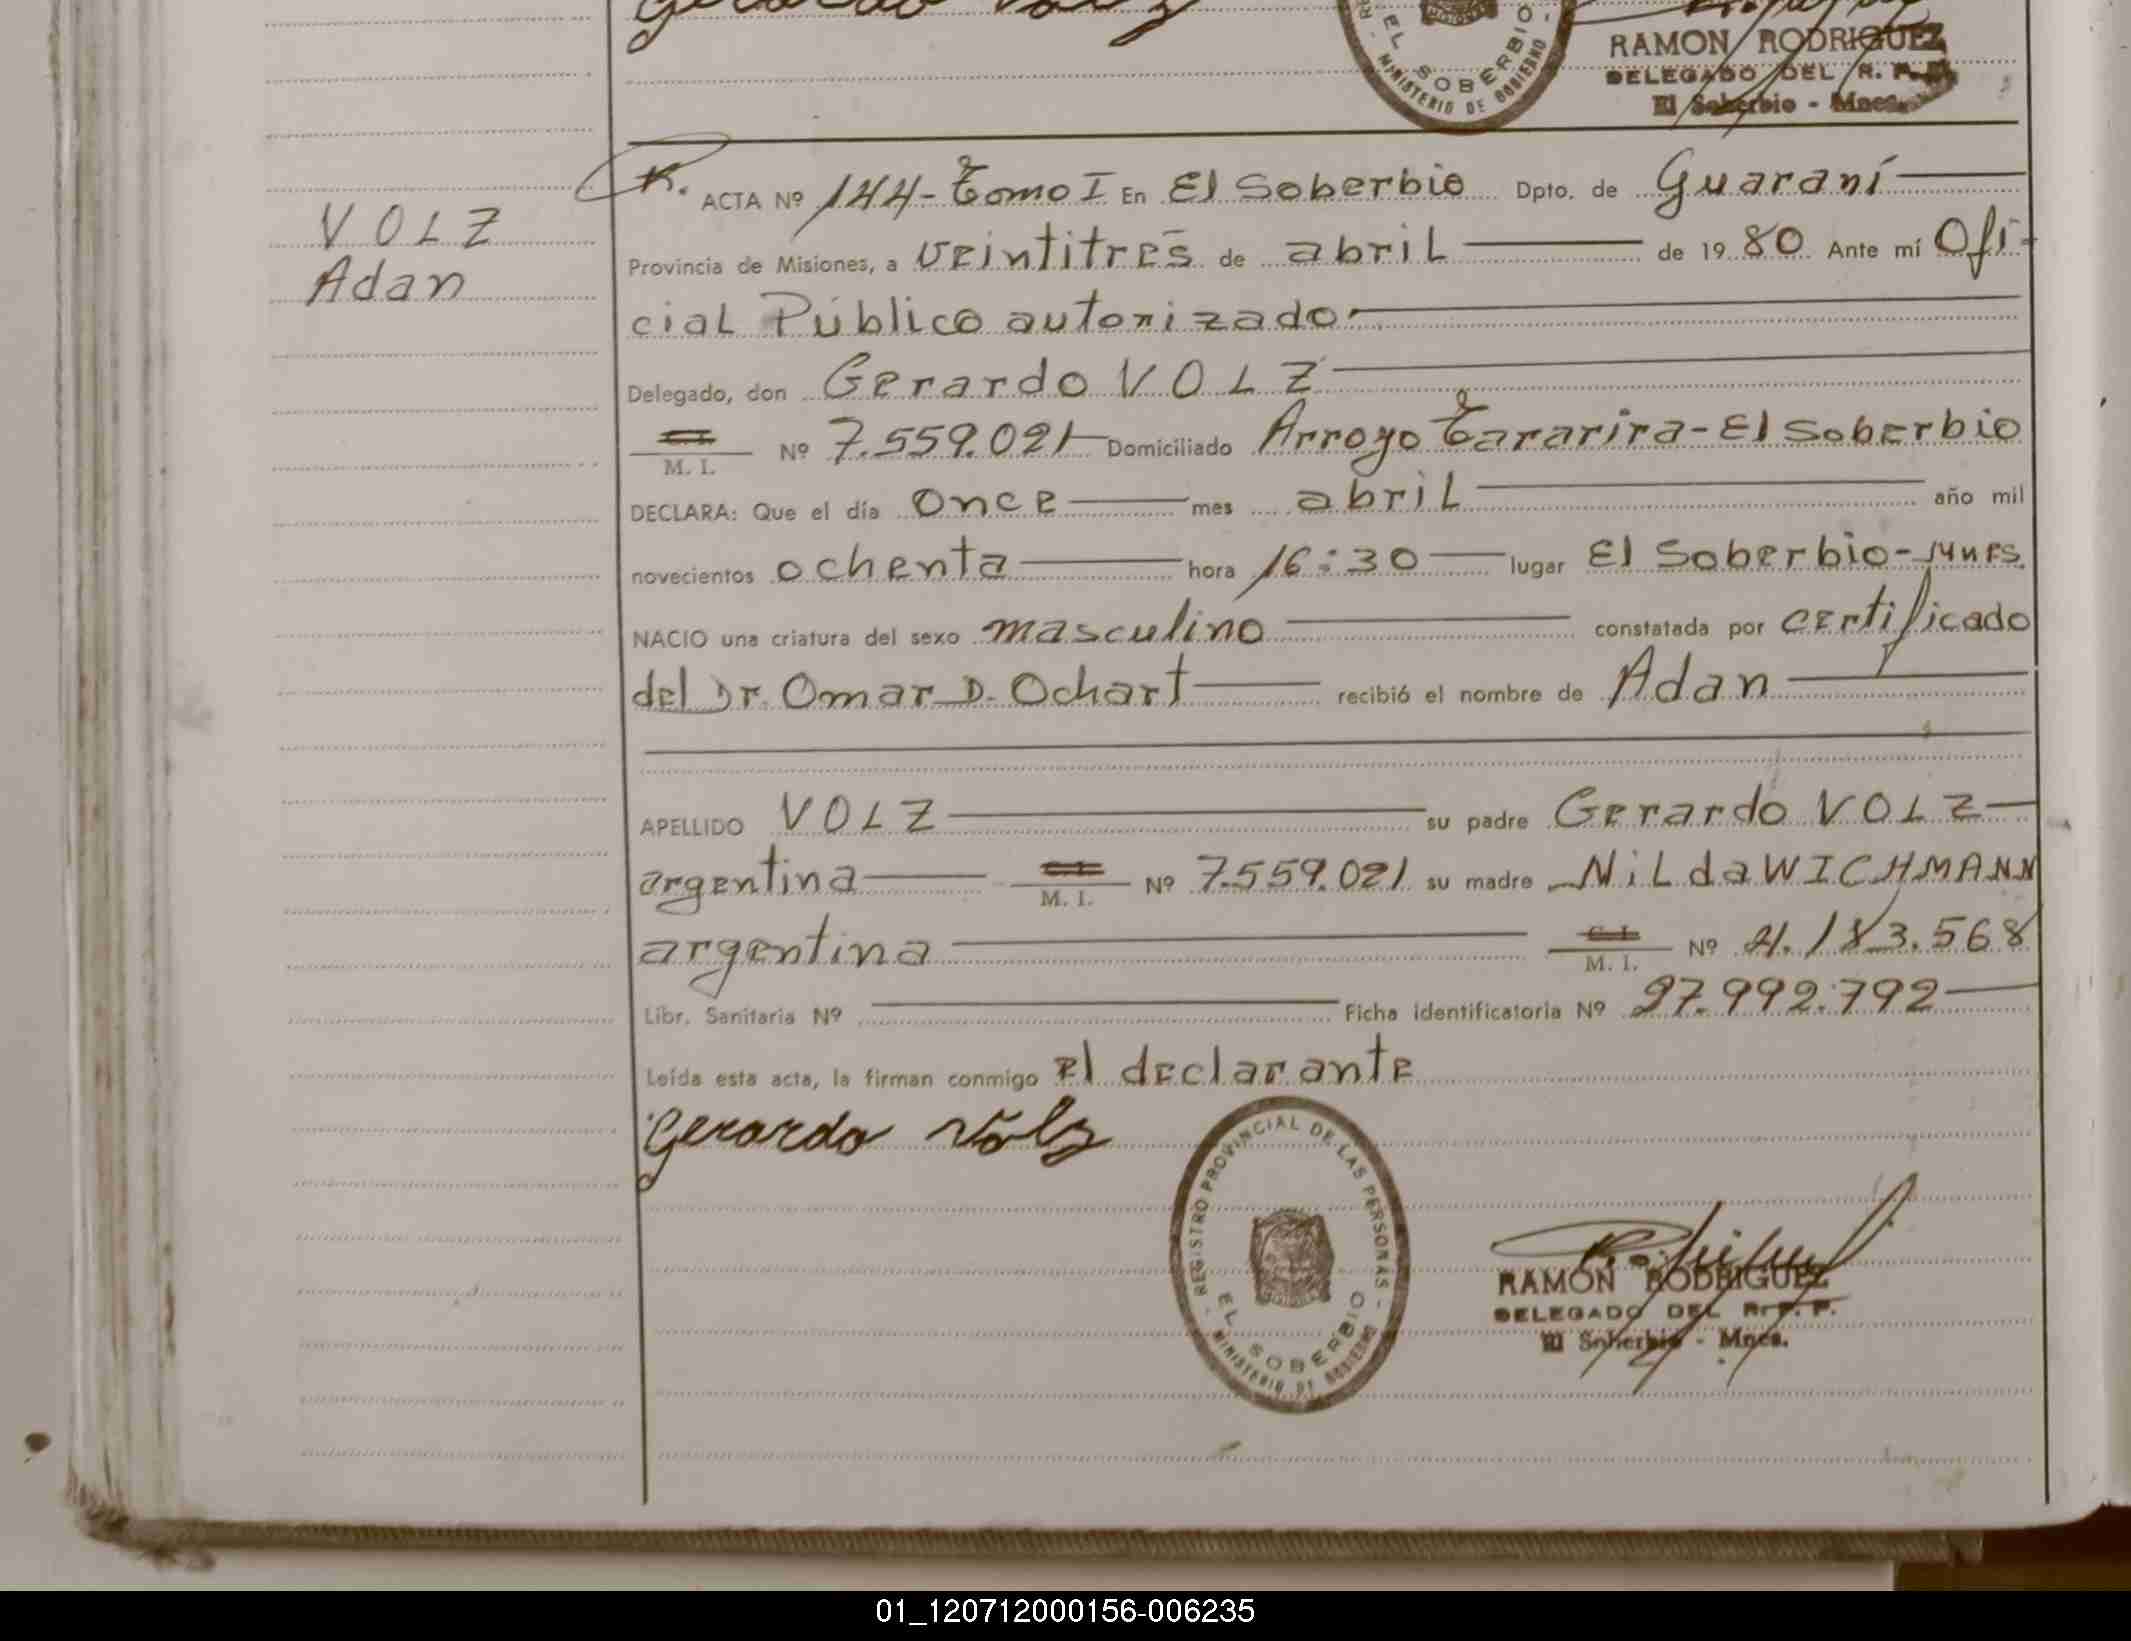 Gerardo Volz
EL SOBERBIO
MINISTERIO DE GOBIERNO
RAMON RODRIGUEZ
DELEGADO DEL R. P. P.
El Soberbio - Mnes.
VOLZ
Adan
R. ACTA Nº 144- Tomo I En El Soberbio Dpto. de Guaraní
Provincia de Misiones, a veintitrés de abril de 19 80 Ante mí Ofi-
cial Público autorizado
Delegado, don Gerardo VOLZ
M. I. Nº 7.559.021 Domiciliado Arroyo Tararira - El Soberbio
DECLARA: Que el día once mes abril año mil
novecientos ochenta hora 16:30 lugar El Soberbio -
NACIO una criatura del sexo masculino constatada por certificado
del Dr. Omar D. Ochart recibió el nombre de Adan
APELLIDO VOLZ su padre Gerardo VOLZ
argentina M. I. Nº 7.559.021 su madre Nilda WICHMANN
argentina C. I. M. I. Nº 21.183.568
Libr. Sanitaria Nº Ficha identificatoria Nº 27.992.792
Leída esta acta, la firman conmigo el declarante
Gerardo Volz
REGISTRO PROVINCIAL DE LAS PERSONAS
EL SOBERBIO
MINISTERIO DE GOBIERNO
RAMON RODRIGUEZ
DELEGADO DEL R. P. P.
El Soberbio - Mnes.
01_120712000156-006235